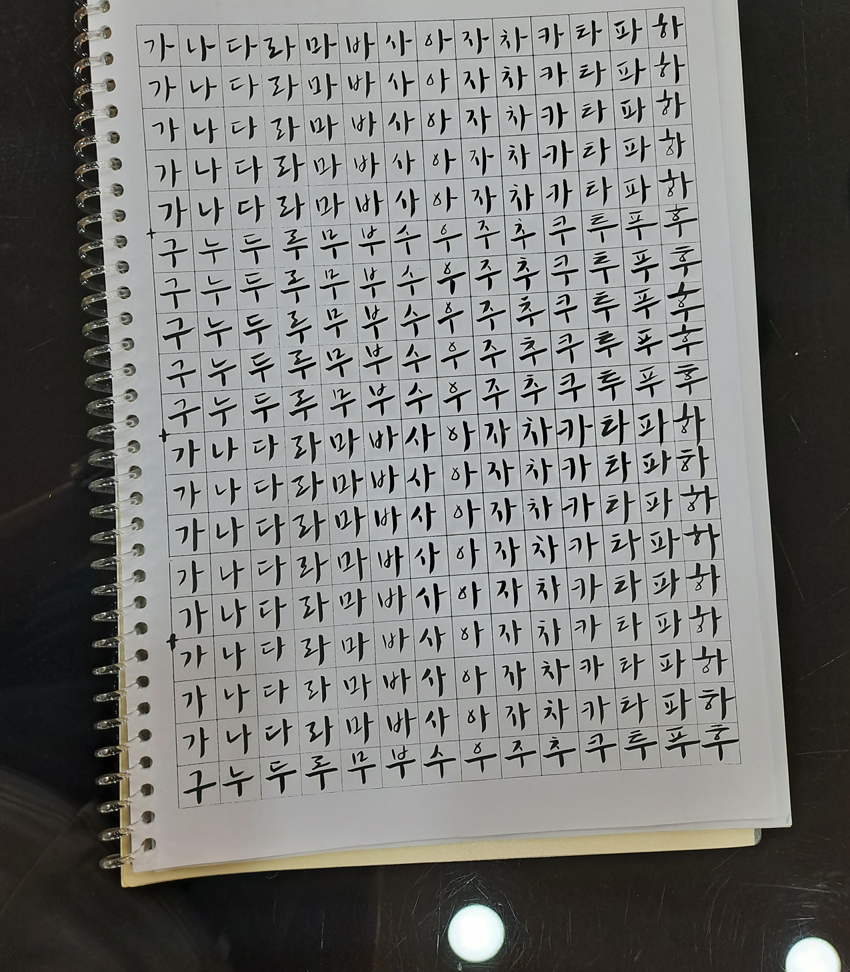 가 나 다 라 마 바 사 아 자 차 카 타 파 하
가 나 다 라 마 바 사 아 자 차 카 타 파 하
가 나 다 라 마 바 사 아 자 차 카 타 파 하
가 나 다 라 마 바 사 아 자 차 카 타 파 하
가 나 다 라 마 바 사 아 자 차 카 타 파 하
구 누 두 루 무 부 수 우 주 추 쿠 투 푸 후
구 누 두 루 무 부 수 우 주 추 쿠 투 푸 후
구 누 두 루 무 부 수 우 주 추 쿠 투 푸 후
구 누 두 루 무 부 수 우 주 추 쿠 투 푸 후
구 누 두 루 무 부 수 우 주 추 쿠 투 푸 후
가 나 다 라 마 바 사 아 자 차 카 타 파 하
가 나 다 라 마 바 사 아 자 차 카 타 파 하
가 나 다 라 마 바 사 아 자 차 카 타 파 하
가 나 다 라 마 바 사 아 자 차 카 타 파 하
가 나 다 라 마 바 사 아 자 차 카 타 파 하
가 나 다 라 마 바 사 아 자 차 카 타 파 하
가 나 다 라 마 바 사 아 자 차 카 타 파 하
가 나 다 라 마 바 사 아 자 차 카 타 파 하
구 누 두 루 무 부 수 우 주 추 쿠 투 푸 후